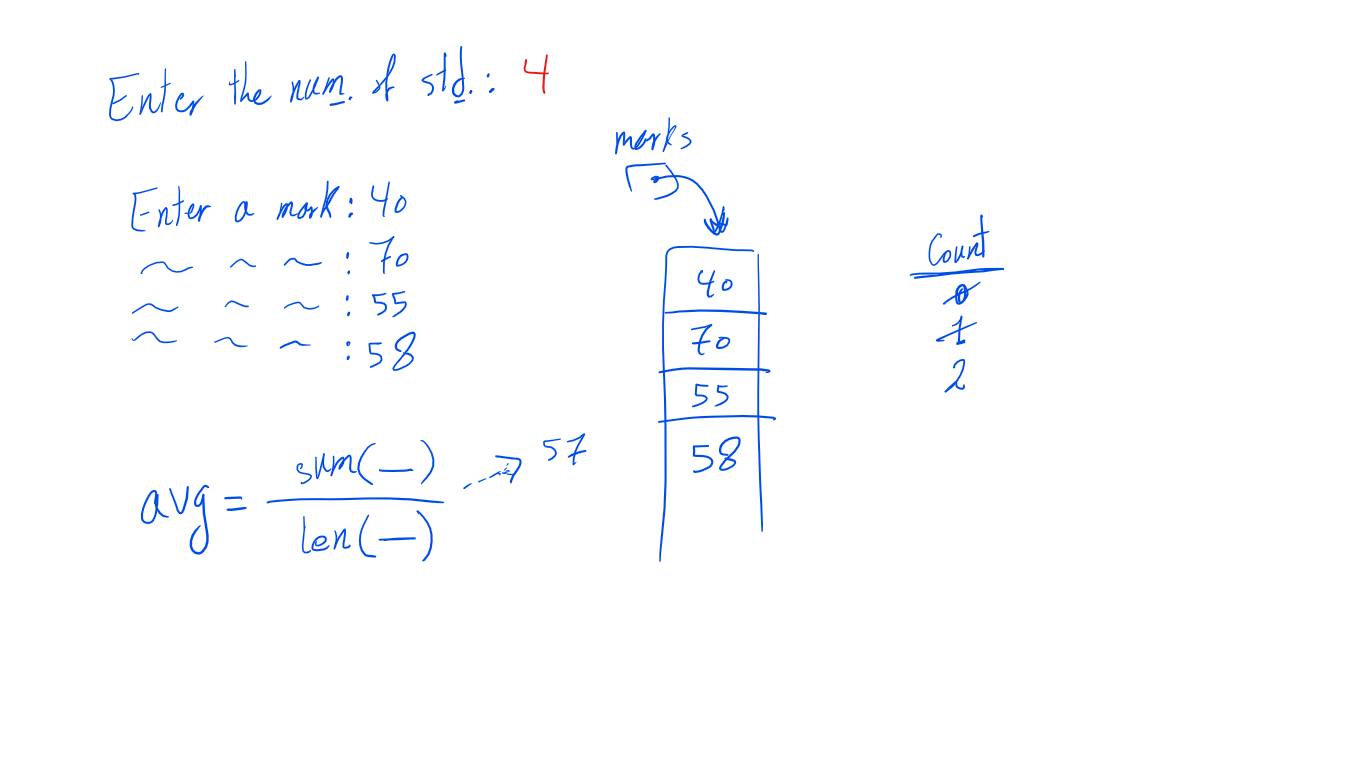 Enter the num. of std.: 4
Enter a mark: 40
~ ~ ~ : 70
~ ~ ~ : 55
~ ~ ~ : 58
avg = sum(—) / len(—) → 57
marks
40
70
55
58
Count
0
1
2